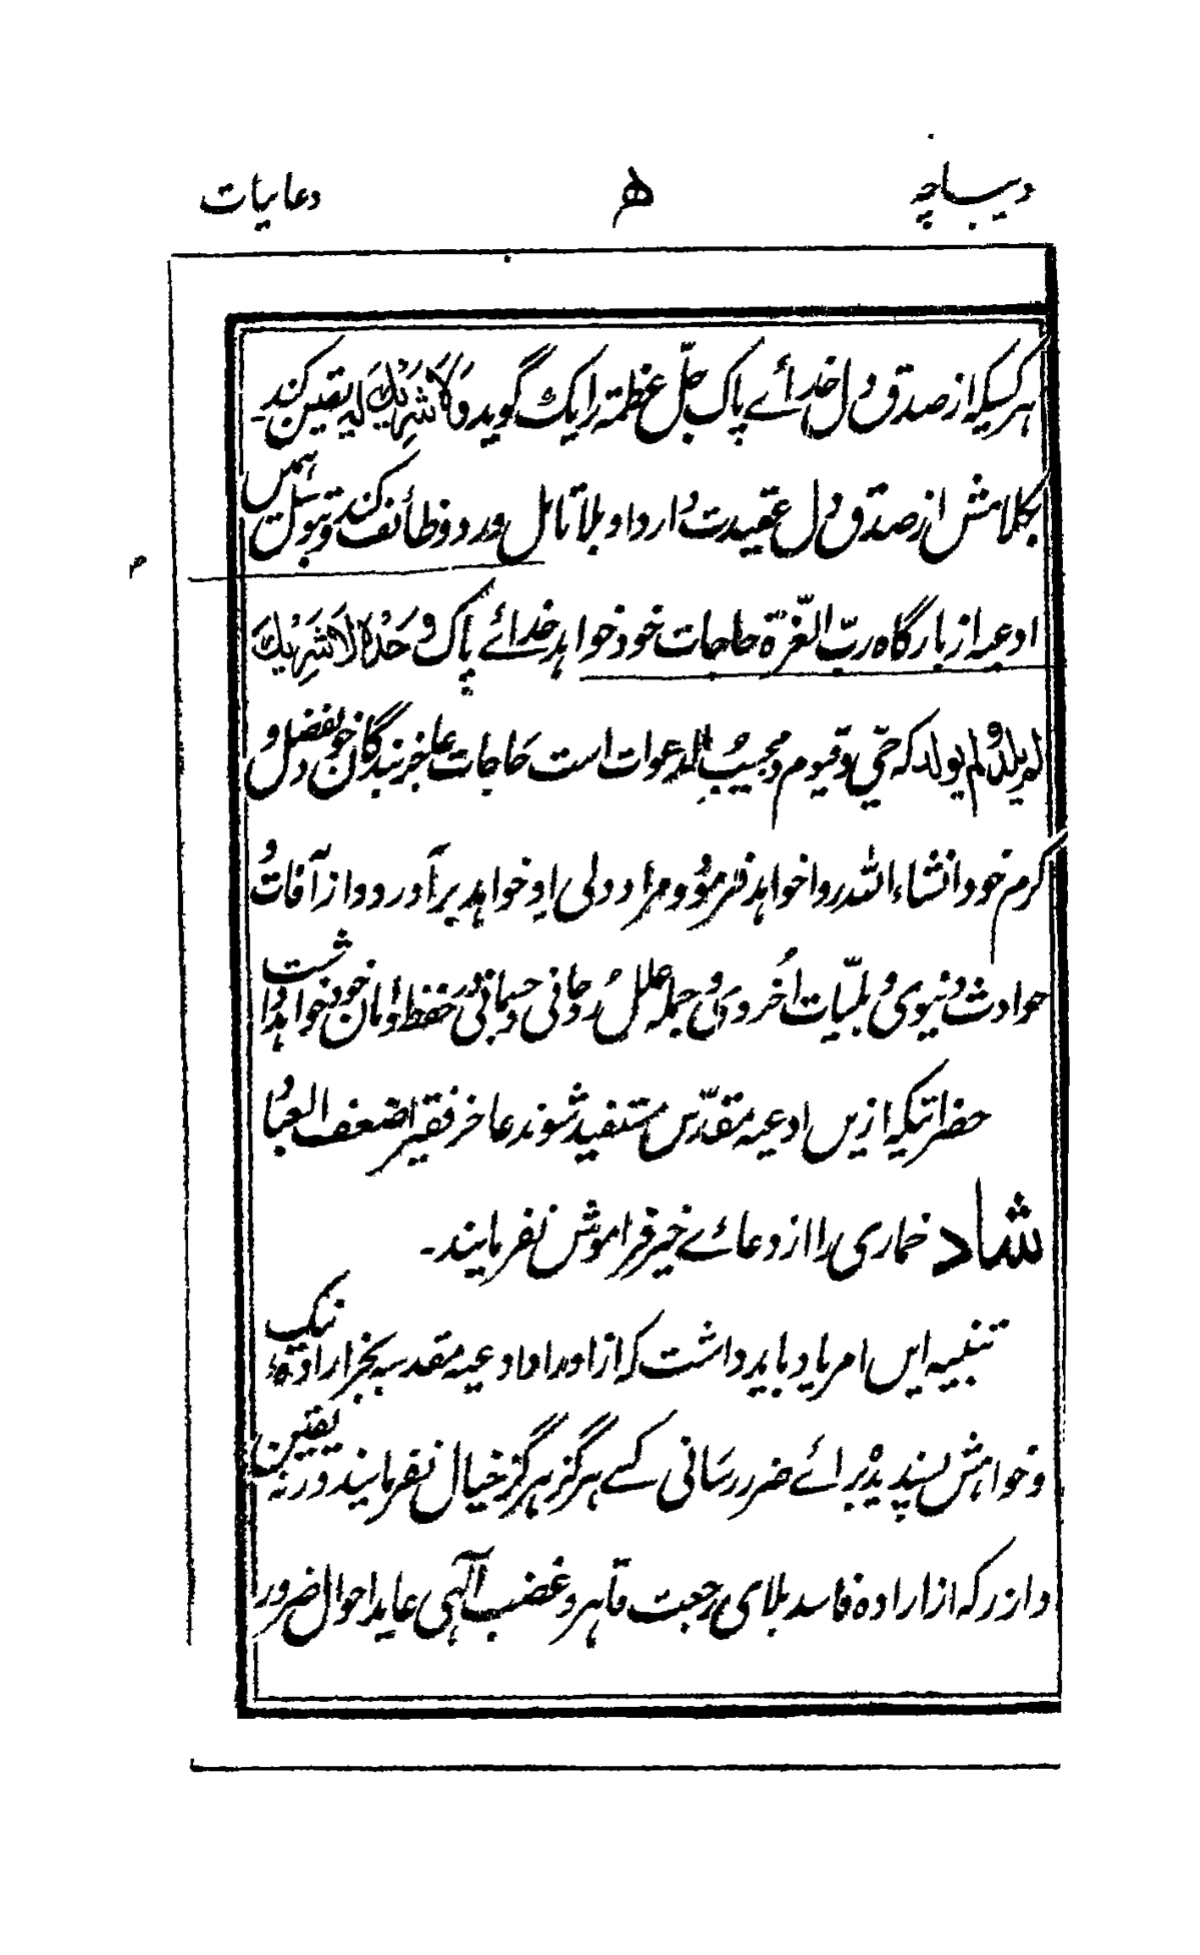 دیباچہ ۵ دعائیات
ہر کسیکہ از صدق دل خدائے پاک جلّ عظمتہ را یک گوید وَلَا شَرِیْكَ لَہ یقین کند۔
بکلامش از صدق دل عقیدت دارد او بلا تامل ورد وظائف کند و بتوسل ہمیں
ادعیہ از بارگاہ ربّ العزۃ حاجات خود خواہد خدائے پاک وَحْدَہٗ لَا شَرِیْكَ
لم یلد ولم یولد کہ حی و قیوم و مجیب الدعوات است حاجات عاجز بندگان خود بفضل و
کرم خود انشاء اللہ روا خواہد فرمود و مراد دلی او خواہد برآورد و از آفات و
حوادث دنیوی و بلیّات اُخروی و جملہ علل روحانی و جسمانی در حفظ و امان خود خواہد داشت
حضراتیکہ ازیں ادعیہ مقدّس مستفید شوند عاجز فقیر اضعف العباد
شاد خماری را از دعائے خیر فراموش نفرمایند۔
تنبیہ ایں امر یاد باید داشت کہ از اوراد ادعیہ مقدسہ بجز ارادۂ نیک
و خواہش پسندیدہ برائے ضرر رسانی کسے ہرگز ہرگز خیال نفرمایند ورنہ یقین
دارند کہ از ارادہ فاسد بلای رجعت قاہر و غضب الٰہی عاید احوال ضرور
م